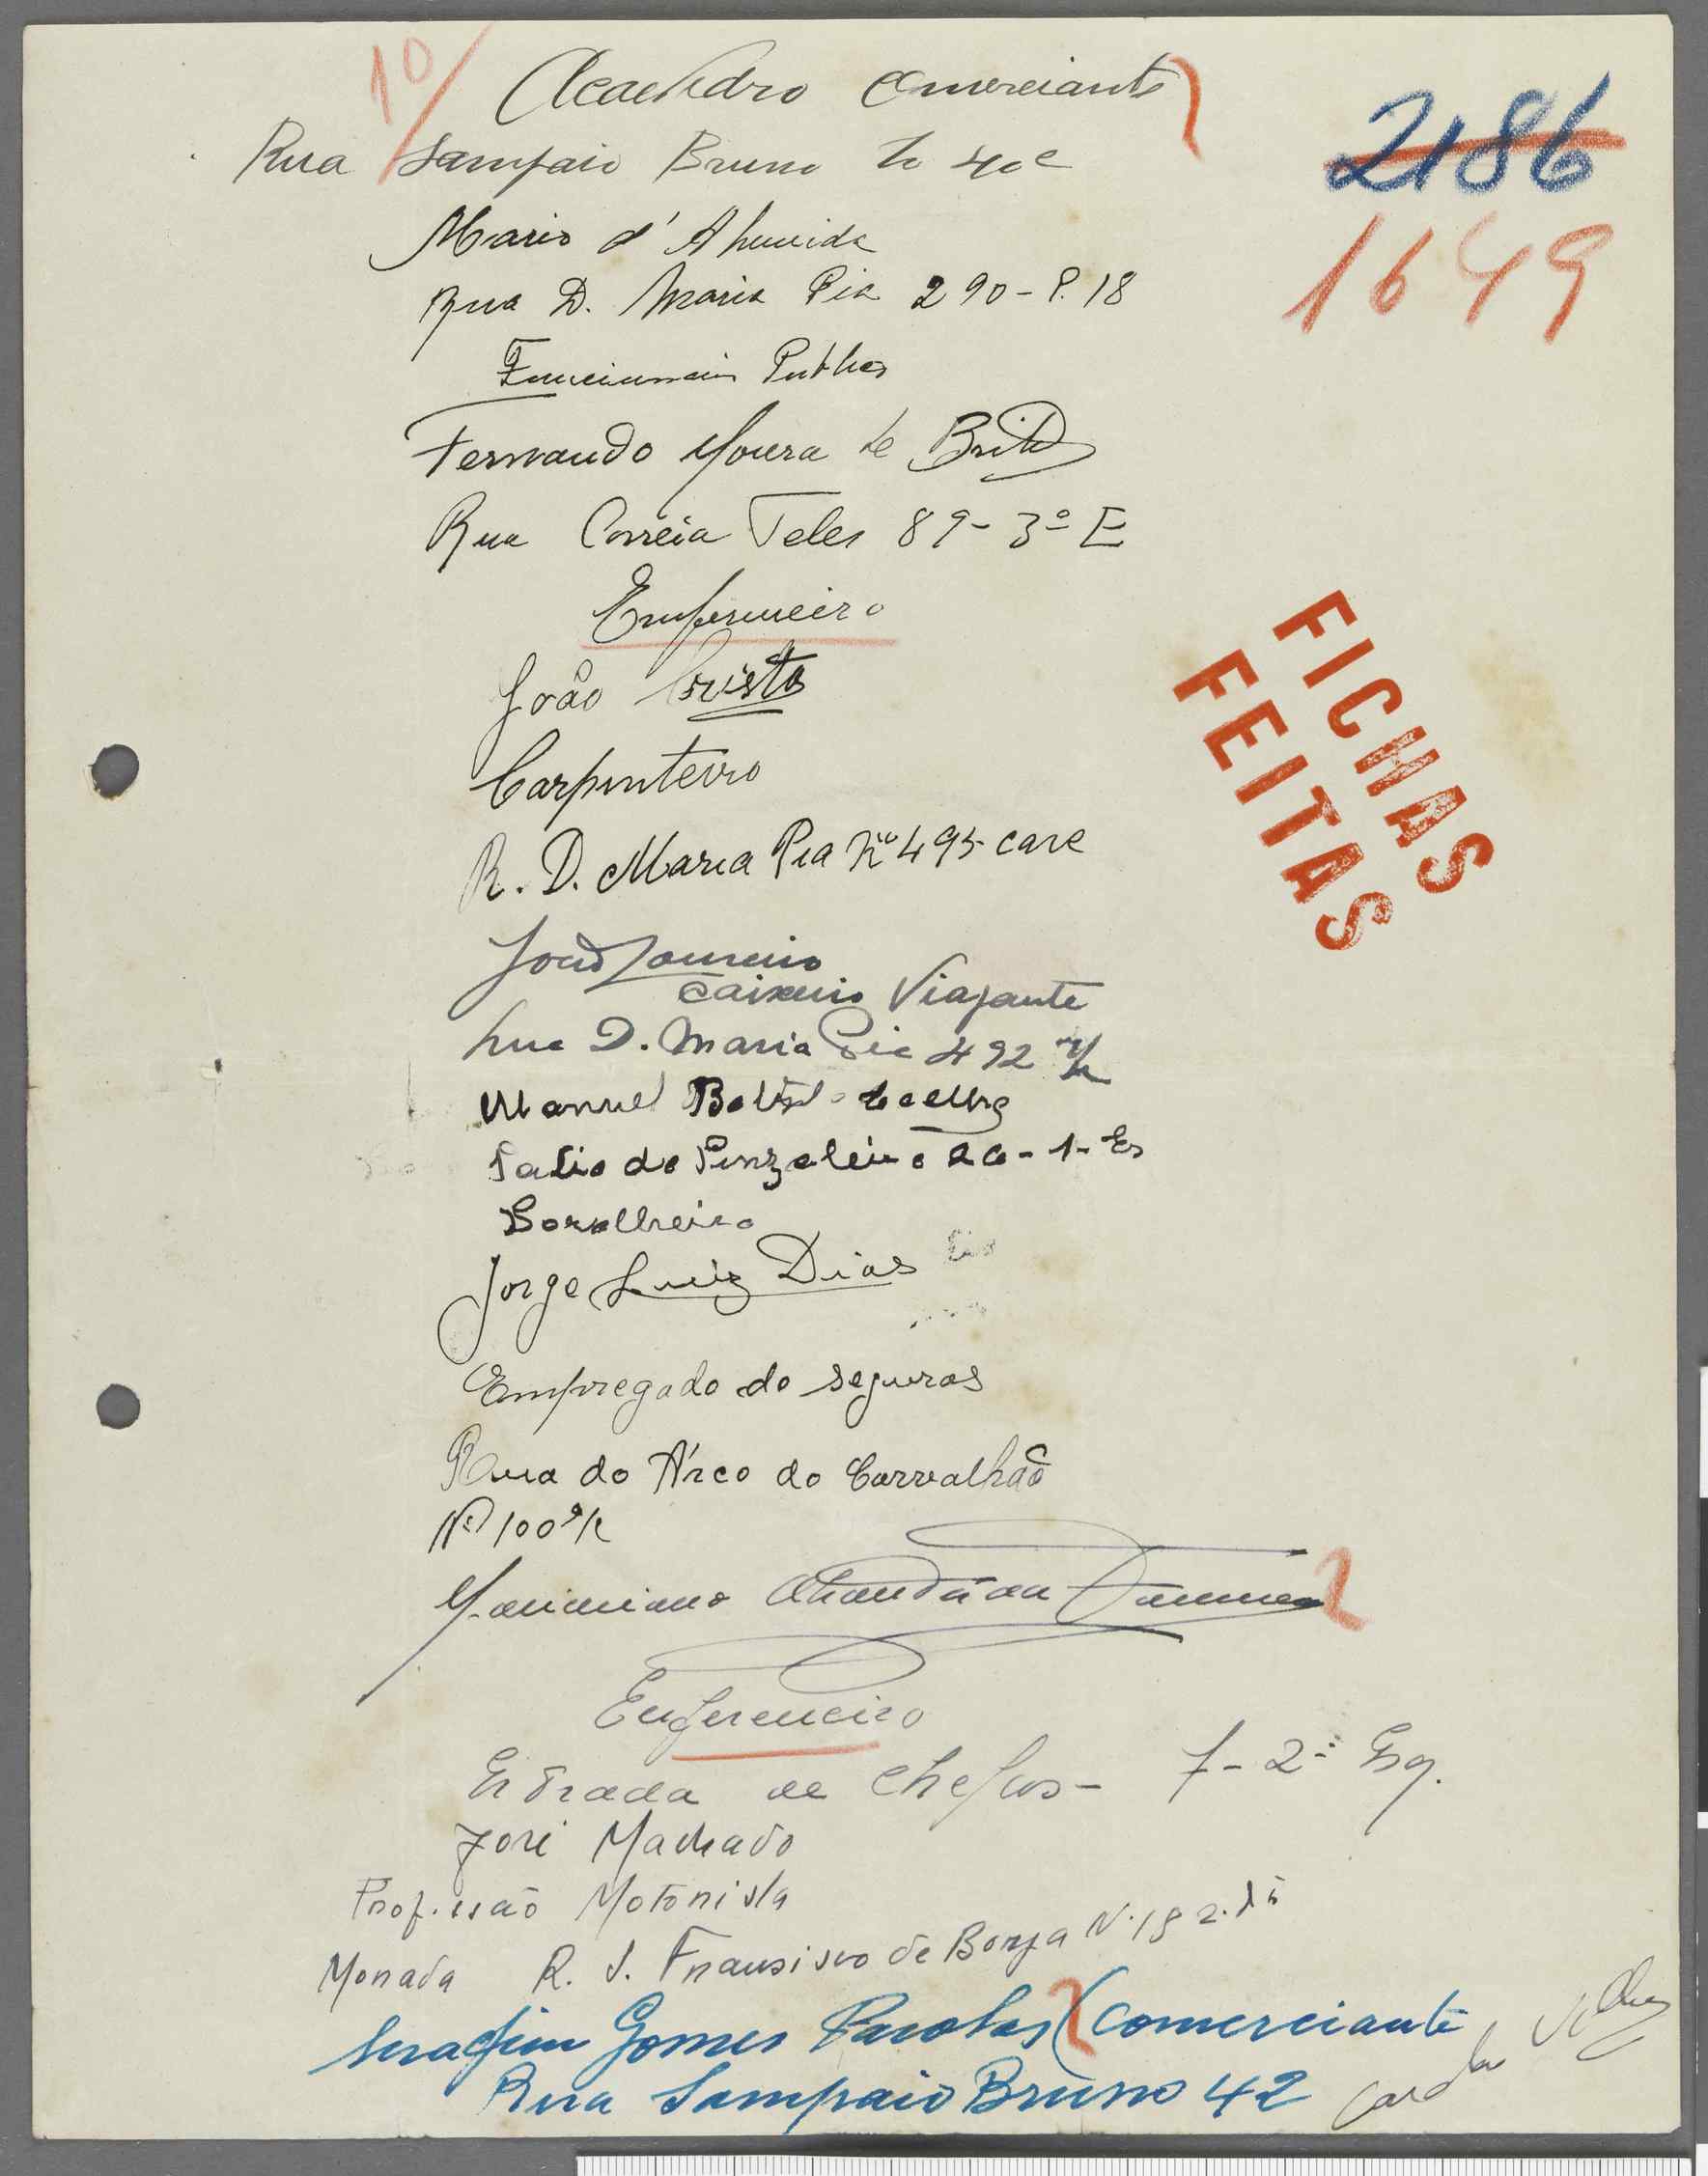 10
Comerciante
2186
Rua Sampaio Bruno 40 c
1649
Mario d'Almeida
Rua D. Maria Pia 290 - P. 18
Funcionario Publico
Fernando Moura de Brito
Rua Correia Teles 89 - 3º E
Enfermeiro
João Cristo
FICHAS
FEITAS
Carpinteiro
R. D. Maria Pia Nº 495 cave
João Loureiro
Caixeiro Viajante
Rua D. Maria Pia 492 r/c
Manuel Coelho
Patio do 1 - Es
Jorge Luiz Dias
Empregado de seguros
Rua do Arco do Carvalhão
Nº 100 r/c
Enfermeiro
Estrada de Chelas - 7 - 2º Esq.
José Machado
Profissão Motorista
Morada R. S. Fransisco de Borja N. 18 2.
Serafim Gomes (Comerciante
Rua Sampaio Bruno 42